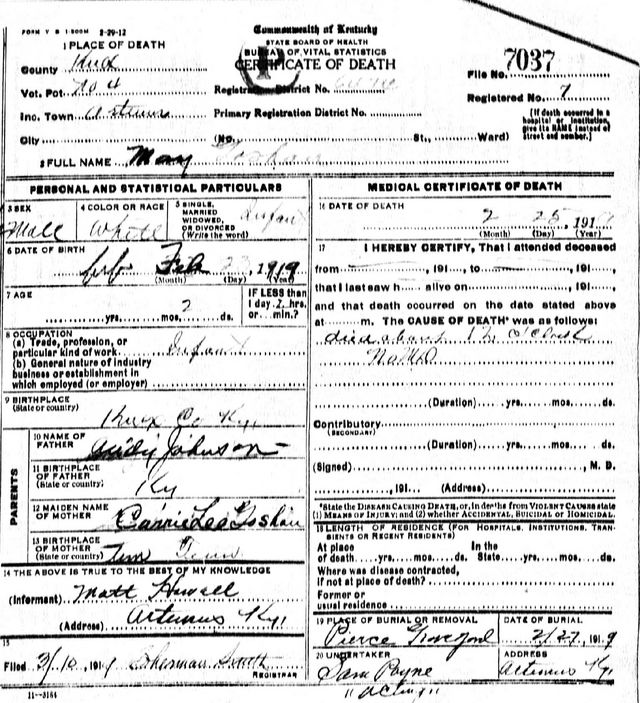 FORM V S 1-500M 2-29-12
Commonwealth of Kentucky
STATE BOARD OF HEALTH
BUREAU OF VITAL STATISTICS
CERTIFICATE OF DEATH
1 PLACE OF DEATH
County Knox
Vot. Pct. No 4
Inc. Town Artemus
City
Registration District No.
Primary Registration District No.
(No. St., Ward)
File No. 7037
Registered No. 7
[If death occurred in a
hospital or institution,
give its NAME instead of
street and number.]
2 FULL NAME
PERSONAL AND STATISTICAL PARTICULARS
3 SEX
Male
4 COLOR OR RACE
White
5 SINGLE,
MARRIED
WIDOWED,
OR DIVORCED
(Write the word)
Infant
6 DATE OF BIRTH
Feb 23, 1919
(Month) (Day) (Year)
7 AGE
yrs. mos. 2 ds.
IF LESS than
1 day, hrs.
or min.?
8 OCCUPATION
(a) Trade, profession, or
particular kind of work Infant
(b) General nature of industry
business or establishment in
which employed (or employer)
9 BIRTHPLACE
(State or country)
Knox Co Ky
PARENTS
10 NAME OF
FATHER
Johnson
11 BIRTHPLACE
OF FATHER
(State or country)
Ky
12 MAIDEN NAME
OF MOTHER
Carrie Lee
13 BIRTHPLACE
OF MOTHER
(State or country)
Tenn
14 THE ABOVE IS TRUE TO THE BEST OF MY KNOWLEDGE
(Informant) Matt Howell
(Address) Artemus Ky.
15
Filed 3/10, 1919 Sherman Smith
REGISTRAR
11--3164
MEDICAL CERTIFICATE OF DEATH
16 DATE OF DEATH
2 25, 191
(Month) (Day) (Year)
17 I HEREBY CERTIFY, That I attended deceased
from , 191 , to , 191 ,
that I last saw h alive on , 191 ,
and that death occurred on the date stated above
at m. The CAUSE OF DEATH* was as follows:
died about 12 o'clock
(Duration) yrs. mos. ds.
Contributory
(SECONDARY)
(Duration) yrs. mos. ds.
(Signed) , M. D.
, 191 (Address)
*State the DISEASE CAUSING DEATH, or, in deaths from VIOLENT CAUSES state
(1) MEANS OF INJURY; and (2) whether ACCIDENTAL, SUICIDAL or HOMICIDAL.
18 LENGTH OF RESIDENCE (FOR HOSPITALS, INSTITUTIONS, TRAN-
SIENTS OR RECENT RESIDENTS)
At place
of death yrs. mos. ds.
In the
State yrs. mos. ds.
Where was disease contracted,
if not at place of death?
Former or
usual residence
19 PLACE OF BURIAL OR REMOVAL
Pierce
DATE OF BURIAL
2/27, 1919
20 UNDERTAKER
Sam Payne
"Acting"
ADDRESS
Artemus Ky.